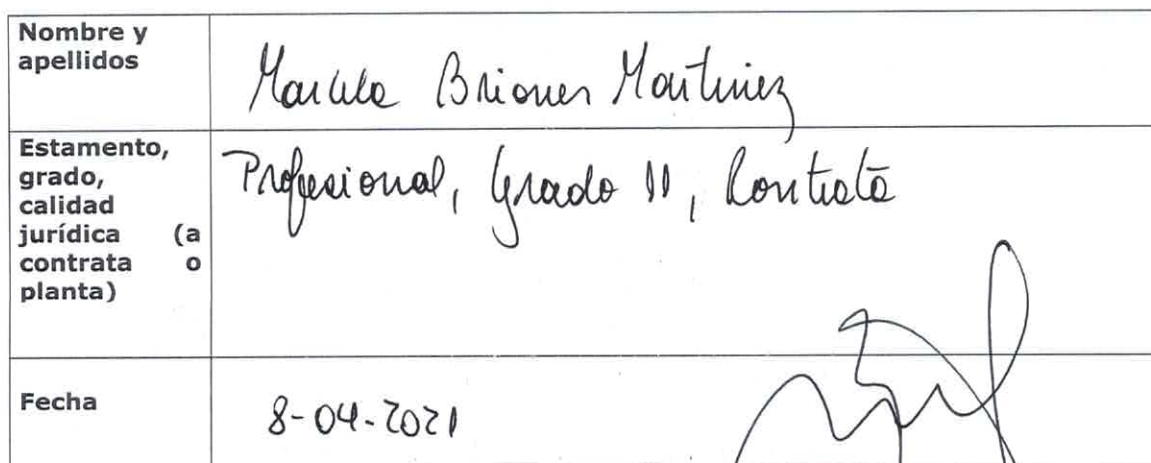 Nombre y
apellidos
Marcela Briones Martinez
Estamento,
grado,
calidad
jurídica (a
contrata o
planta)
Profesional, Grado 11, Contrata
Fecha
8-04-2021